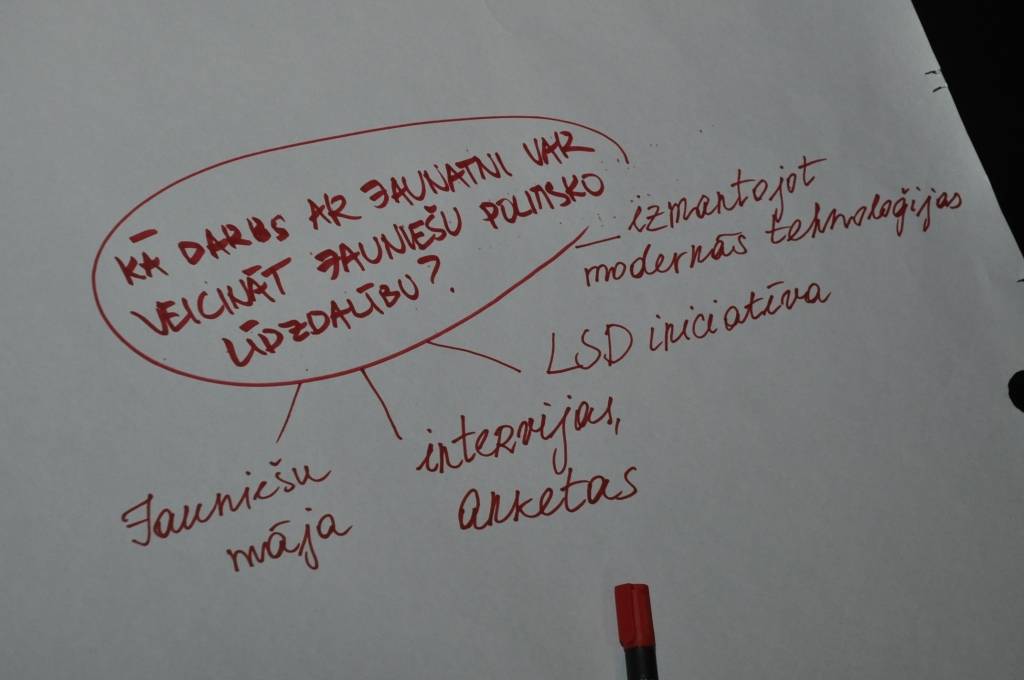 KĀ DARBS AR JAUNATNI VAR
VEICINĀT JAUNIEŠU POLITISKO
LĪDZDALĪBU?
izmantojot
modernās tehnoloģijas
LSD iniciatīva
intervijas,
anketas
Jauniešu
māja